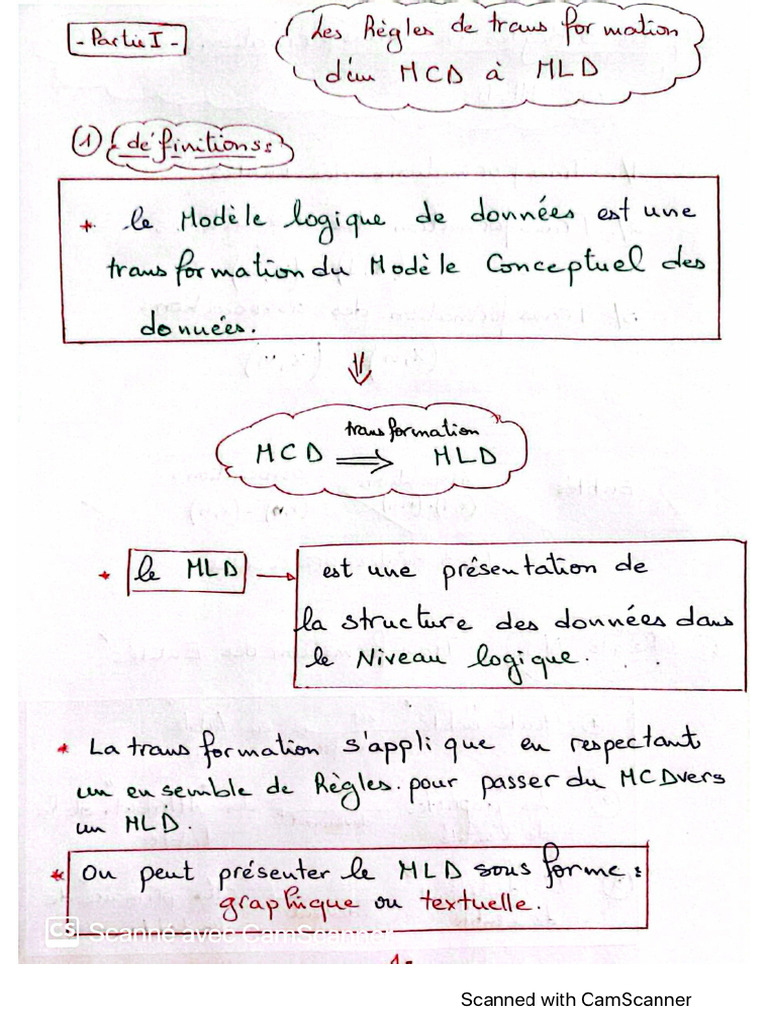 - Partie I -
Les Règles de transformation
d'un MCD à MLD
① définitions:
* le Modèle logique de données est une
transformation du Modèle Conceptuel des
données.
⇓
transformation
MCD ⟹ MLD
* le MLD → est une présentation de
la structure des données dans
le Niveau logique.
* La transformation s'applique en respectant
un ensemble de Règles. pour passer du MCD vers
un MLD.
* On peut présenter le MLD sous forme :
graphique ou textuelle.
CS Scanné avec CamScanner
1-
Scanned with CamScanner